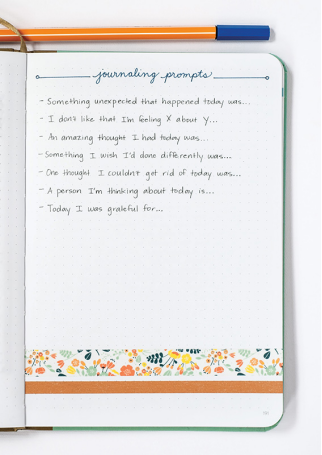 journaling prompts
- Something unexpected that happened today was...
- I don't like that I'm feeling X about Y...
- An amazing thought I had today was...
- Something I wish I'd done differently was...
- One thought I couldn't get rid of today was...
- A person I'm thinking about today is...
- Today I was grateful for...